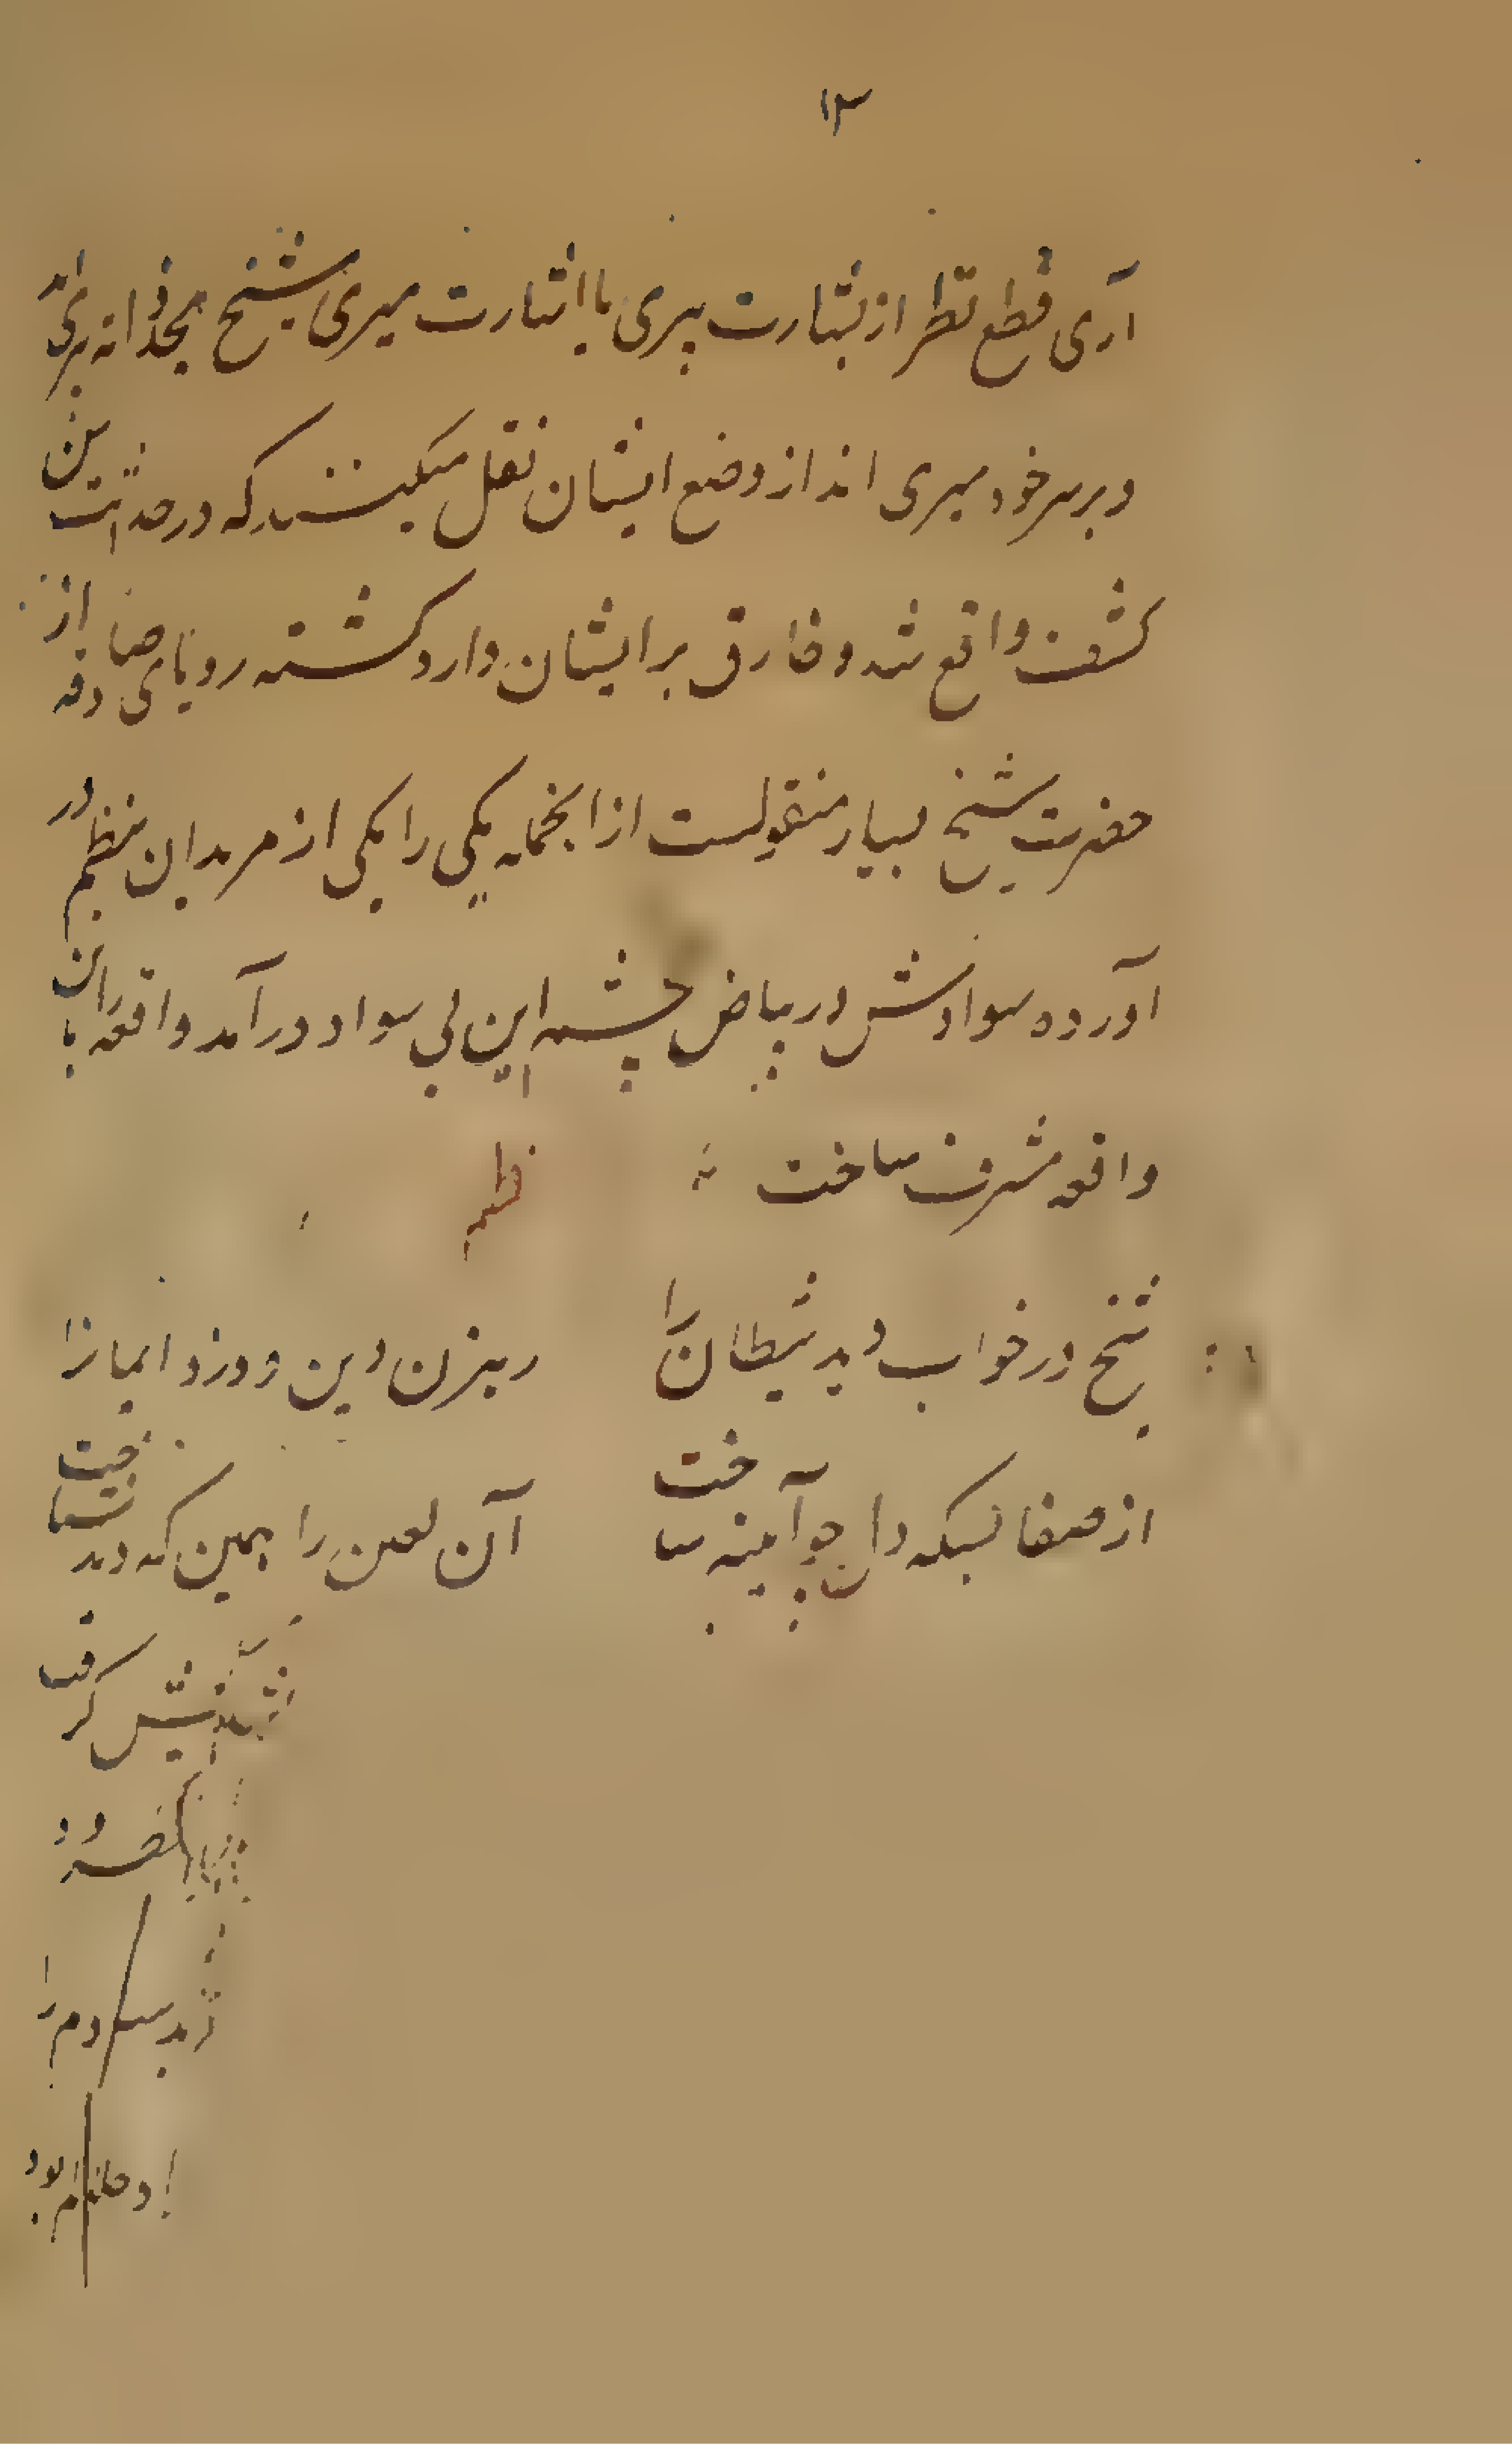 ۱۳
آری قطع نظر از بشارت پیری با اشارت میری شیخ مجذوبانه برمی‌آید
و بر سر خود میری انداز وضع ایشان نقل میکنند که در حداثت سن
کشف واقع شد و خارق بر ایشان وارد گشته رویای صادقه از
حضرت شیخ بسیار منقولست از انجمله یکی را یکی از مریدان بنظم در
آورده سوادش در بیاض چشم این بی سواد در آمد واقعه را باین
واقعه مشرف ساخت
نظم
شیخ در خواب دید شیطان را
رهزن دین و دزد ایمانرا
از صفا بسکه دل چو آیینه ساخت
آن لعین را همین که دید شناخت
ریش گرفت
دم را
بود